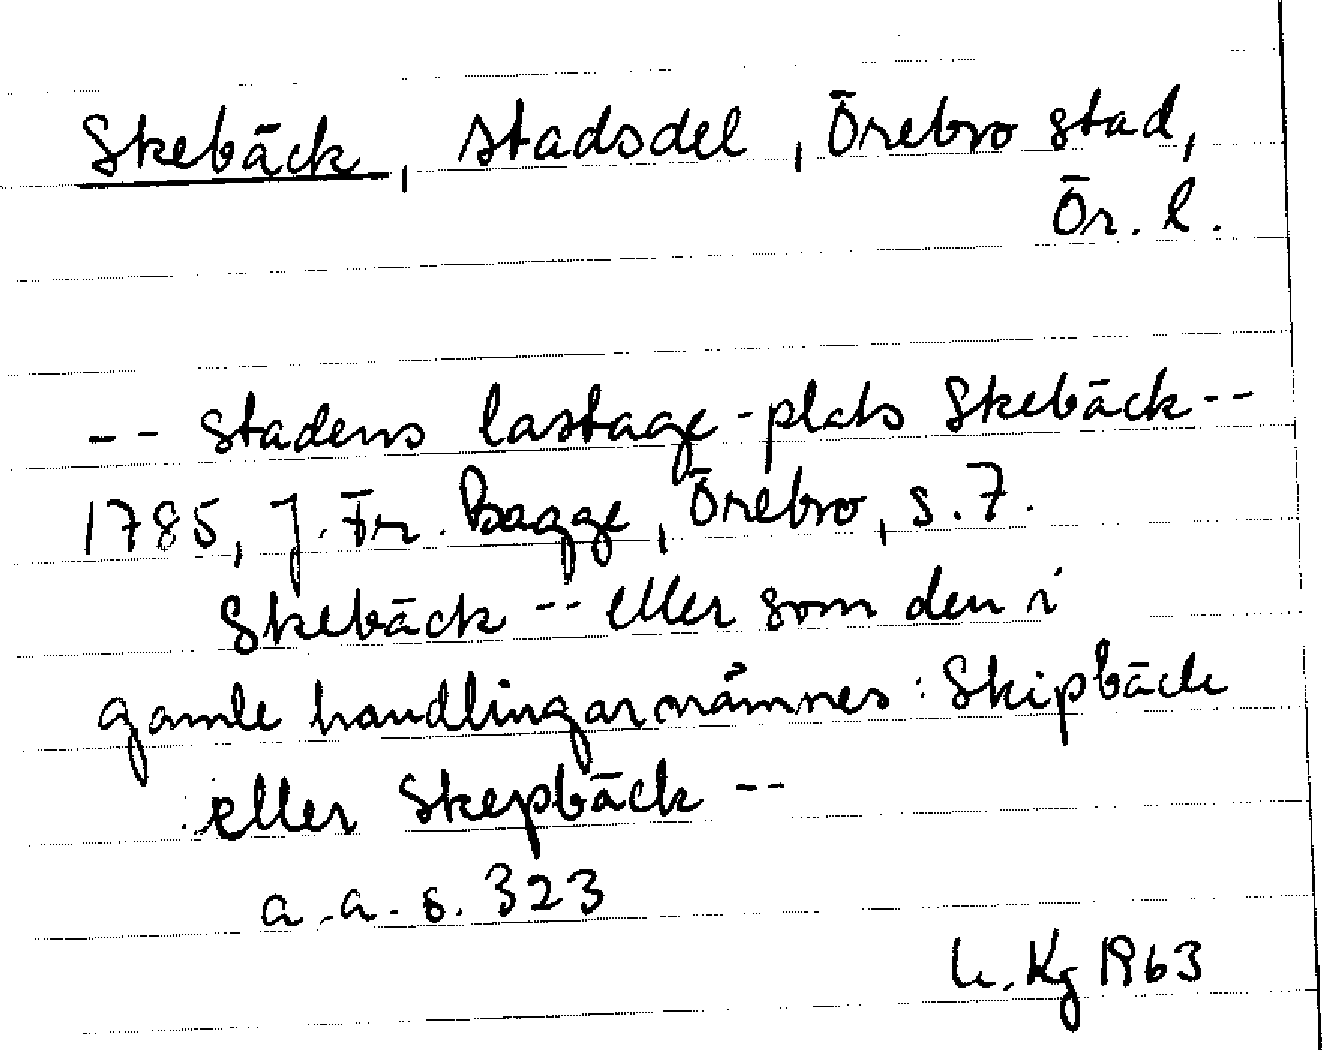 Skebäck, stadsdel, Örebro stad,
Ör. l.
-- stadens lastage-plats Skebäck --
1785, J. Fr. Bagge, Örebro, s. 7.
Skebäck -- eller som den i
gamle handlingar nämnes: Skipbäck
eller Skepbäck --
a.a. s. 323
Kg 1963